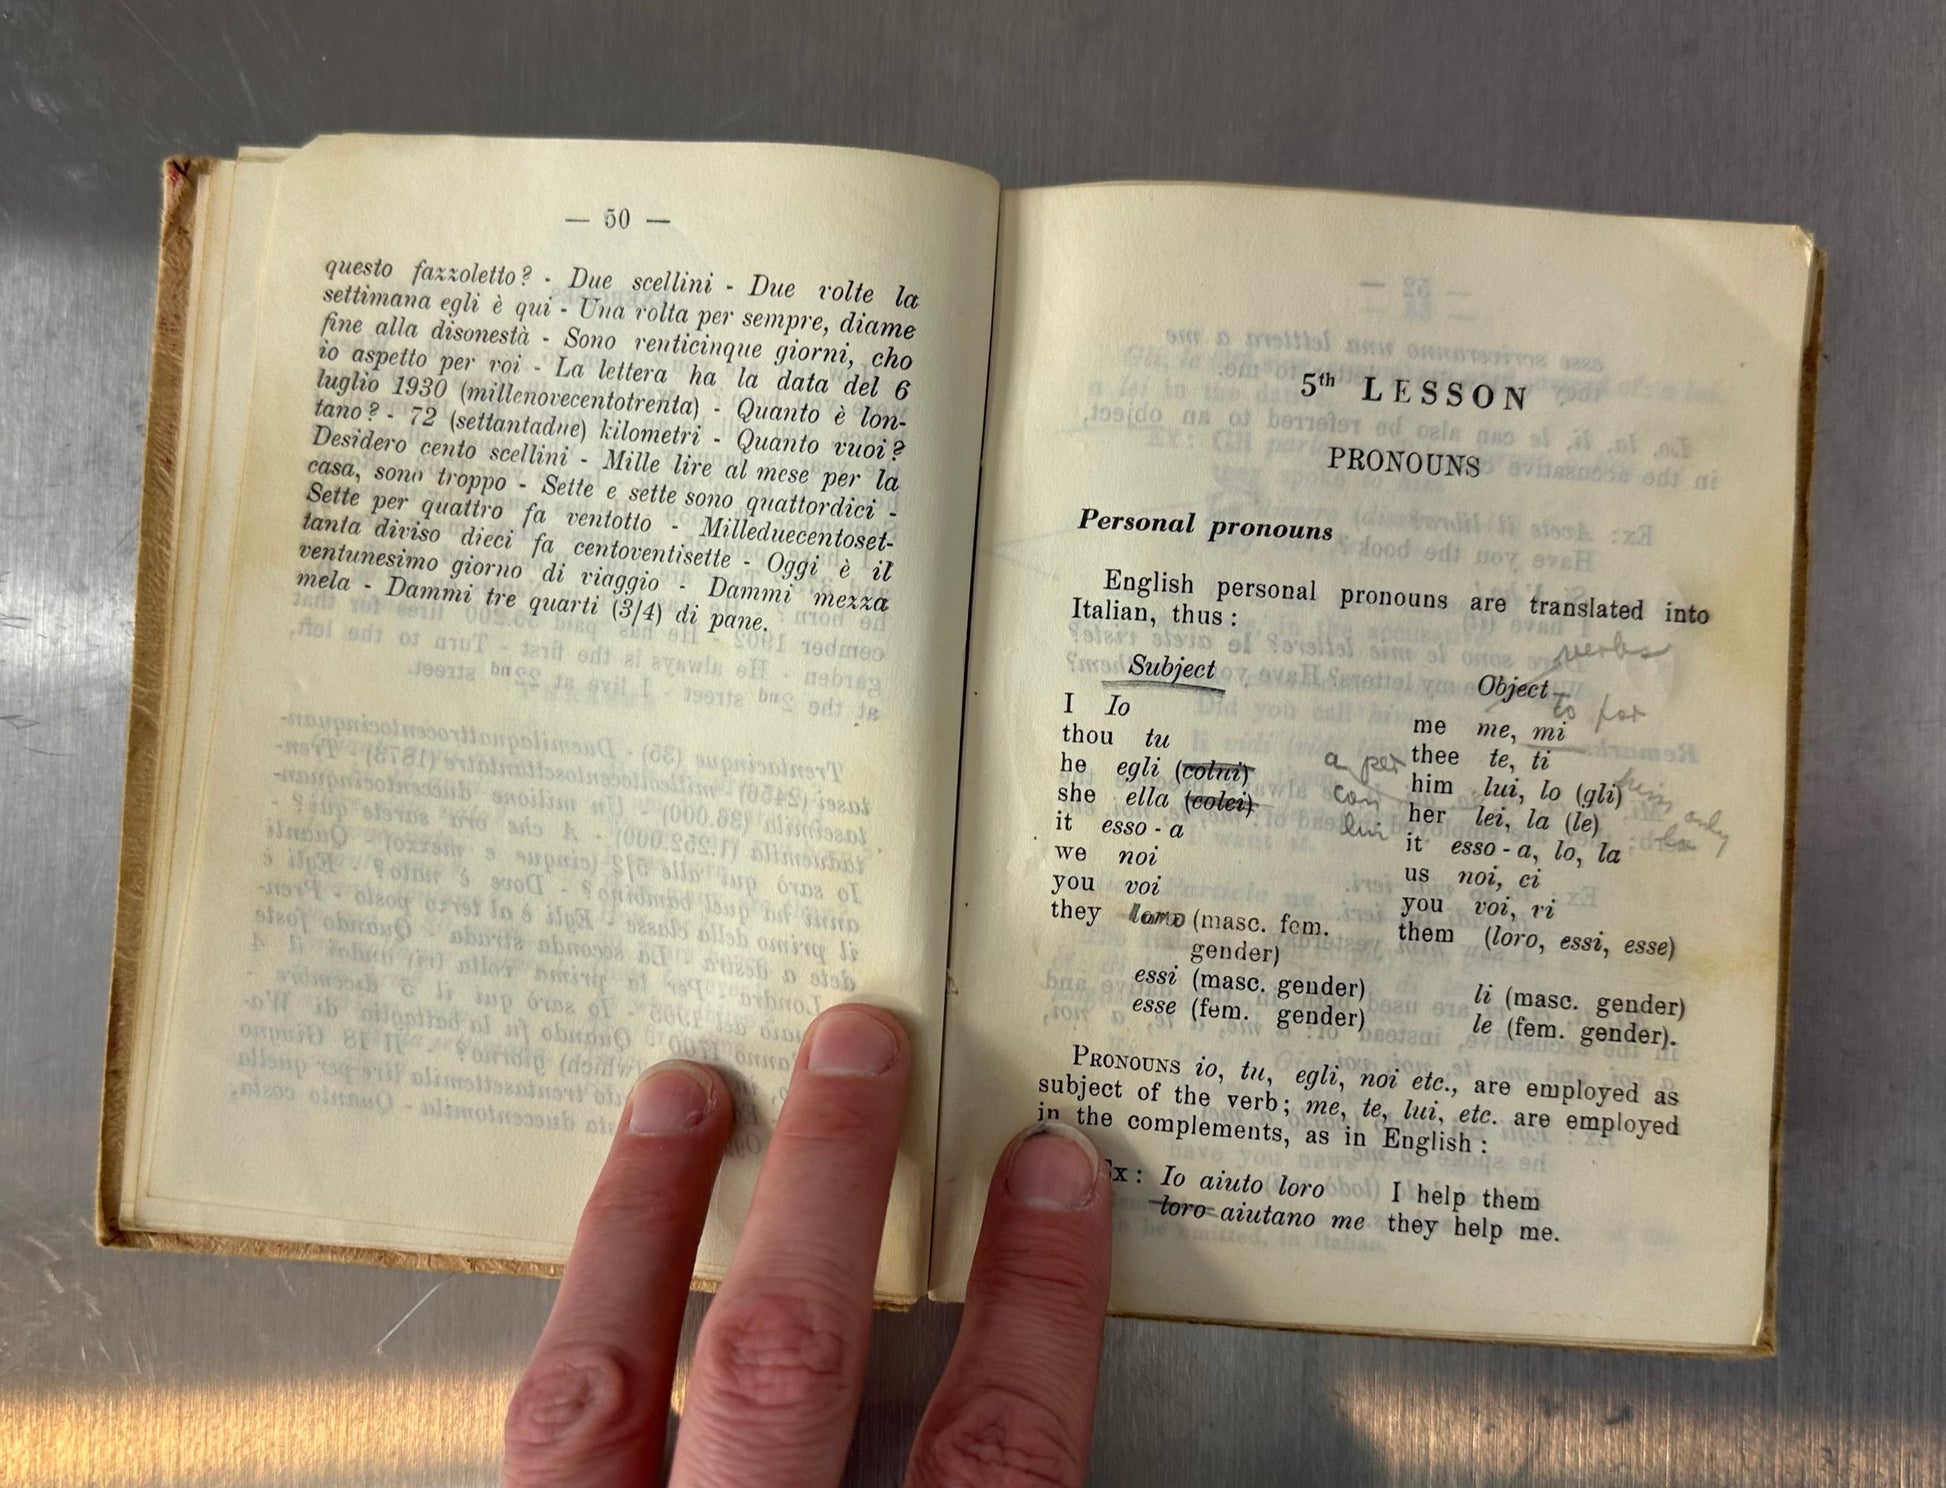 — 50 —
questo fazzoletto? - Due scellini - Due volte la
settimana egli è qui - Una volta per sempre, diame
fine alla disonestà - Sono venticinque giorni, cho
io aspetto per voi - La lettera ha la data del 6
luglio 1930 (millenovecentotrenta) - Quanto è lon-
tano? - 72 (settantadue) kilometri - Quanto vuoi?
Desidero cento scellini - Mille lire al mese per la
casa, sono troppo - Sette e sette sono quattordici -
Sette per quattro fa ventotto - Milleduecentoset-
tanta diviso dieci fa centoventisette - Oggi è il
ventunesimo giorno di viaggio - Dammi mezza
mela - Dammi tre quarti (3/4) di pane.
5th LESSON
PRONOUNS
Personal pronouns
English personal pronouns are translated into
Italian, thus :
verbs
Subject
Object
to for
I Io
me me, mi
thou tu
a per
thee te, ti
he egli (colui)
him lui, lo (gli)
she ella (colei)
con
her lei, la (le)
only
it esso - a
lui
it esso - a, lo, la
we noi
us noi, ci
you voi
you voi, vi
they loro (masc. fem.
gender)
them (loro, essi, esse)
essi (masc. gender)
li (masc. gender)
esse (fem. gender)
le (fem. gender).
PRONOUNS io, tu, egli, noi etc., are employed as
subject of the verb; me, te, lui, etc. are employed
in the complements, as in English :
Ex : Io aiuto loro I help them
loro aiutano me they help me.